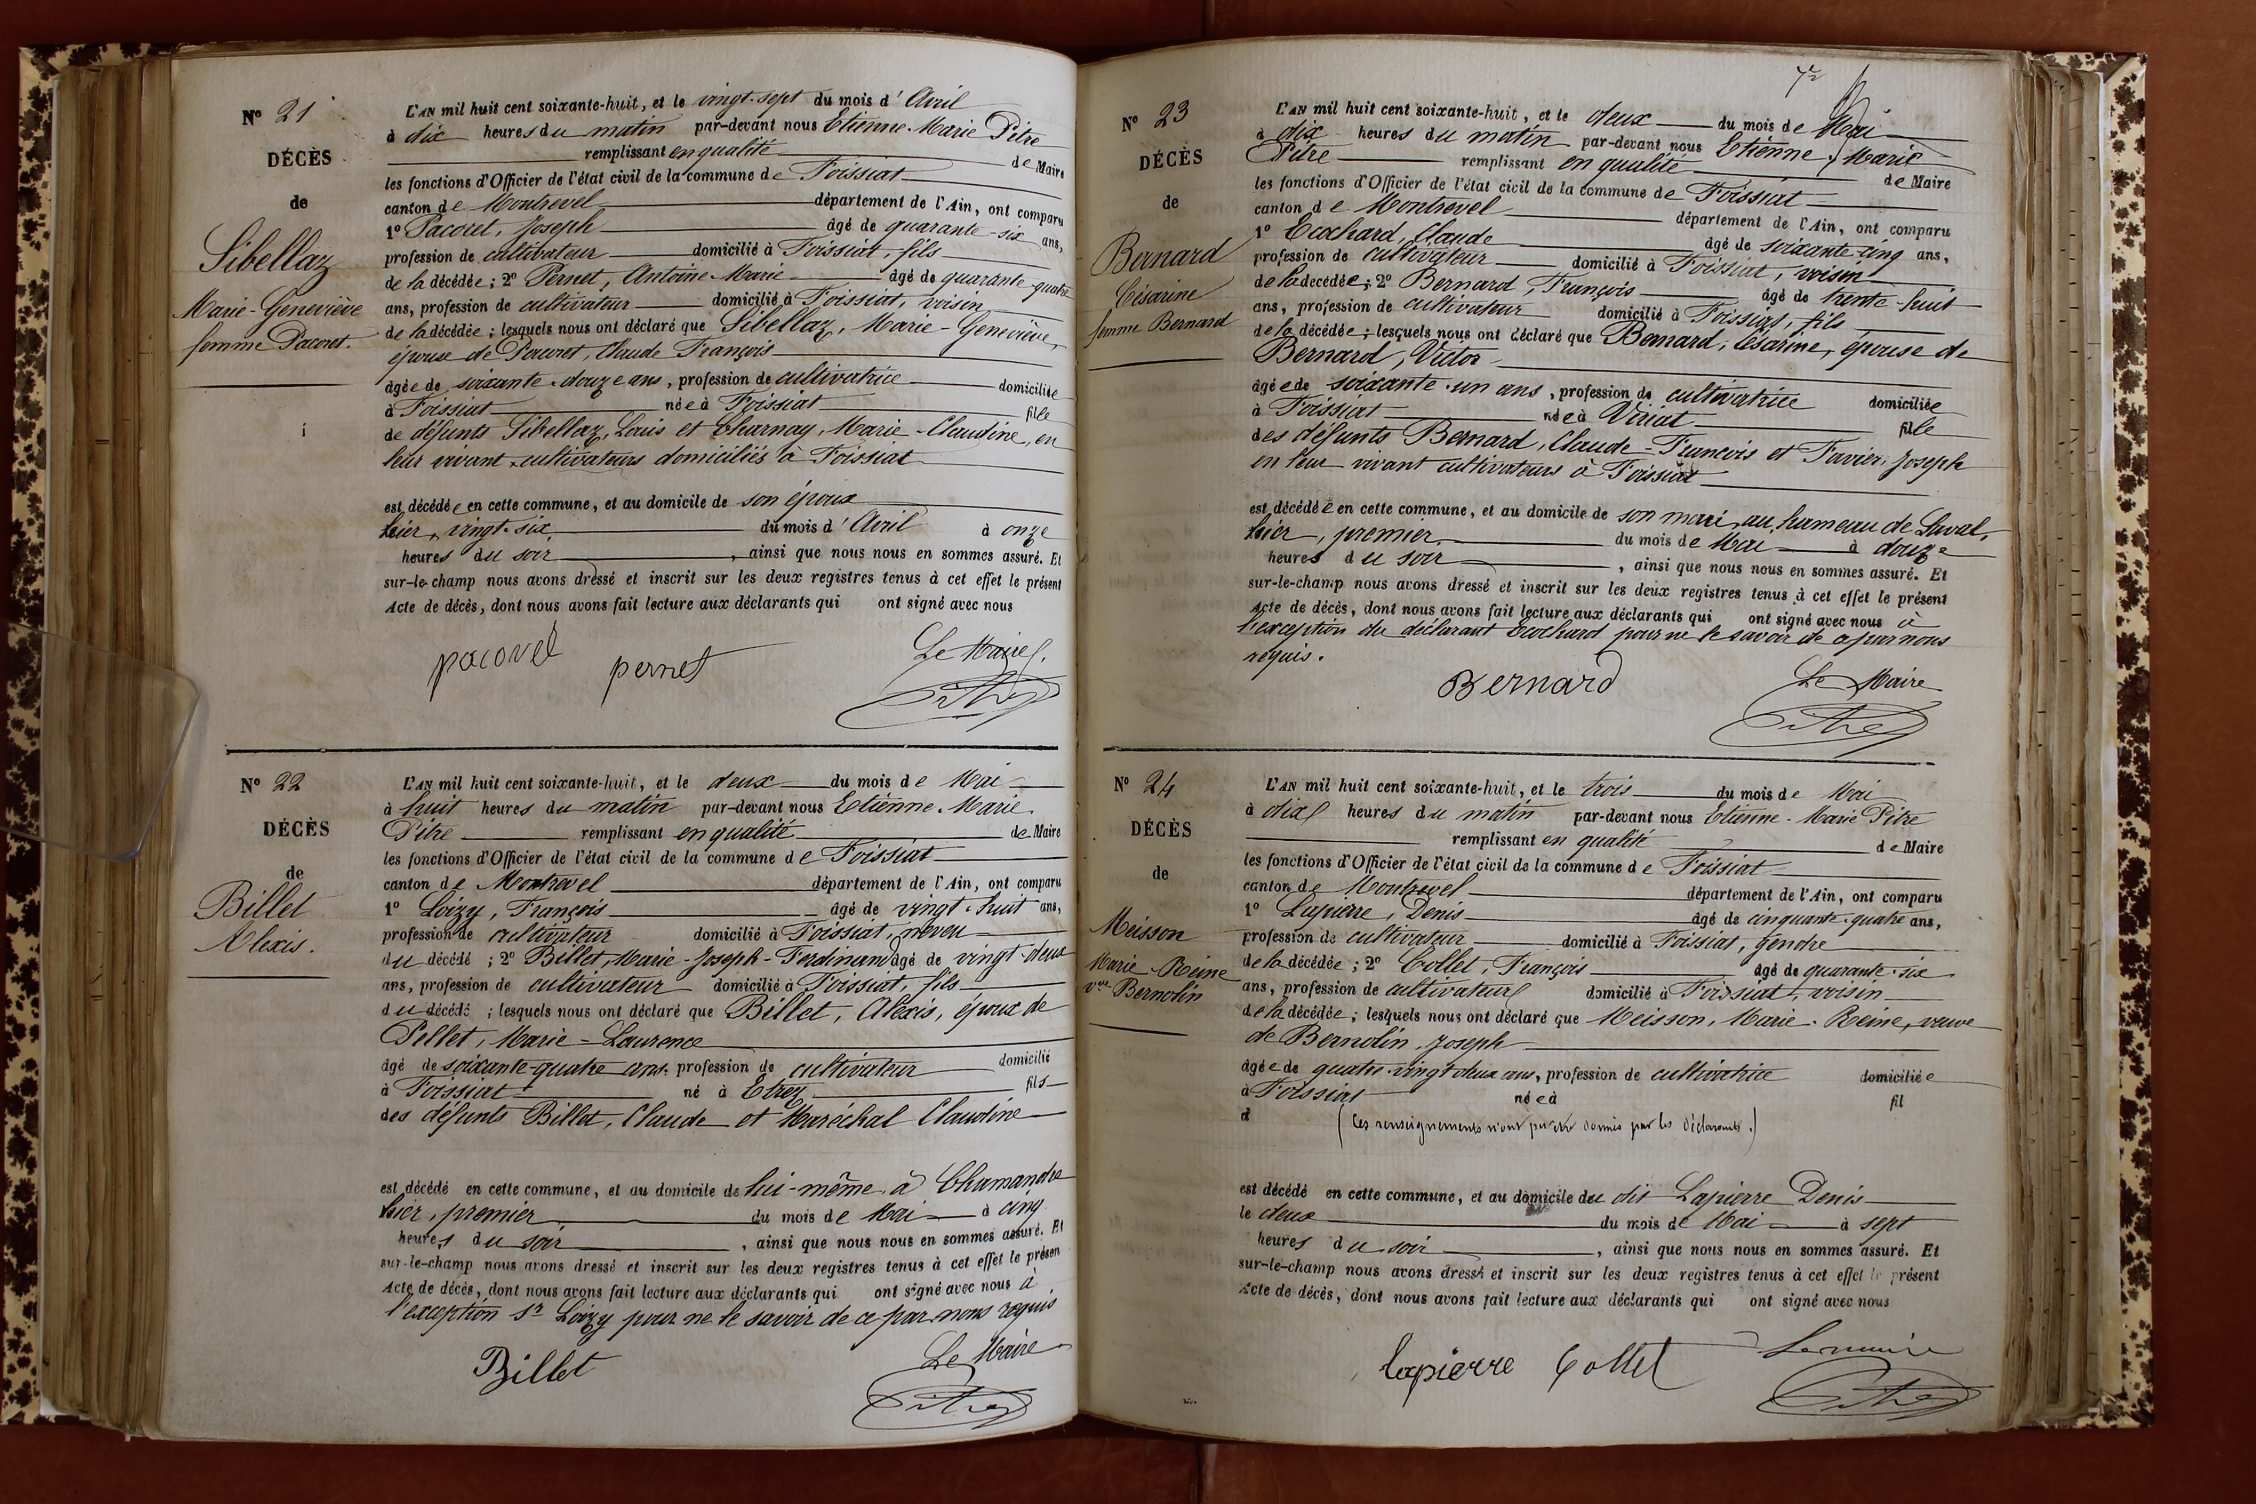 N° 21
DÉCÈS
de
Sibellaz
Marie-Geneviève
femme Pacoret.
L'AN mil huit cent soixante-huit, et le vingt-sept du mois d'Avril
à dix heures du matin par-devant nous Etienne-Marie Pitre
remplissant en qualité de Maire
les fonctions d'Officier de l'état civil de la commune de Foissiat
canton de Montrevel département de l'Ain, ont comparu
1° Pacoret, Joseph âgé de quarante-six ans,
profession de cultivateur domicilié à Foissiat, fils
de la décédée; 2° Pernet, Antoine-Marie âgé de quarante-quatre
ans, profession de cultivateur domicilié à Foissiat, voisin
de la décédée; lesquels nous ont déclaré que Sibellaz, Marie-Geneviève,
épouse de Pacoret, Claude François
âgée de soixante-douze ans, profession de cultivatrice domiciliée
à Foissiat née à Foissiat fille
de défunts Sibellaz, Louis et Charnay, Marie-Claudine, en
leur vivant cultivateurs domiciliés à Foissiat
est décédée en cette commune, et au domicile de son époux
hier, vingt-six, du mois d'Avril à onze
heures du soir, ainsi que nous nous en sommes assuré. Et
sur-le-champ nous avons dressé et inscrit sur les deux registres tenus à cet effet le présent
Acte de décès, dont nous avons fait lecture aux déclarants qui ont signé avec nous
pacoret pernet Le Maire
Pitre
N° 22
DÉCÈS
de
Billet
Alexis.
L'AN mil huit cent soixante-huit, et le deux du mois de Mai
à huit heures du matin par-devant nous Etienne-Marie
Pitre remplissant en qualité de Maire
les fonctions d'Officier de l'état civil de la commune de Foissiat
canton de Montrevel département de l'Ain, ont comparu
1° Loizy, François âgé de vingt-huit ans,
profession de cultivateur domicilié à Foissiat, neveu
du décédé; 2° Billet, Marie-Joseph-Ferdinand âgé de vingt-deux
ans, profession de cultivateur domicilié à Foissiat, fils
du décédé; lesquels nous ont déclaré que Billet, Alexis, époux de
Pellet, Marie-Laurence
âgé de soixante-quatre ans, profession de cultivateur domicilié
à Foissiat né à Etrez fils
des défunts Billet, Claude et Maréchal Claudine
est décédé en cette commune, et au domicile de lui-même à Chamandre
hier, premier, du mois de Mai à cinq
heures du soir, ainsi que nous nous en sommes assuré. Et
sur-le-champ nous avons dressé et inscrit sur les deux registres tenus à cet effet le présen
Acte de décès, dont nous avons fait lecture aux déclarants qui ont signé avec nous à
l'exception sr Loizy pour ne le savoir de ce par nous requis
Billet Le Maire
Pitre
N° 23
DÉCÈS
de
Bernard
Césarine
femme Bernard
L'AN mil huit cent soixante-huit, et le deux du mois de Mai
à dix heures du matin par-devant nous Etienne-Marie
Pitre remplissant en qualité de Maire
les fonctions d'Officier de l'état civil de la commune de Foissiat
canton de Montrevel département de l'Ain, ont comparu
1° Ecochard, Claude âgé de soixante-cinq ans,
profession de cultivateur domicilié à Foissiat, voisin
de la décédée; 2° Bernard, François âgé de trente-huit
ans, profession de cultivateur domicilié à Foissiat, fils
de la décédée; lesquels nous ont déclaré que Bernard, Césarine, épouse de
Bernard, Victor
âgée de soixante-un ans, profession de cultivatrice domiciliée
à Foissiat née à Viriat fille
des défunts Bernard, Claude-François et Favier, Joseph
en leur vivant cultivateurs à Foissiat
est décédée en cette commune, et au domicile de son mari au hameau de Laval,
hier, premier, du mois de Mai à douze
heures du soir, ainsi que nous nous en sommes assuré. Et
sur-le-champ nous avons dressé et inscrit sur les deux registres tenus à cet effet le présent
Acte de décès, dont nous avons fait lecture aux déclarants qui ont signé avec nous à
l'exception du déclarant Ecochard pour ne le savoir de ce par nous
requis.
Bernard Le Maire
Pitre
N° 24
DÉCÈS
de
Meisson
Marie-Reine
vve Bernolin
L'AN mil huit cent soixante-huit, et le trois du mois de Mai
à dix heures du matin par-devant nous Etienne-Marie Pitre
remplissant en qualité de Maire
les fonctions d'Officier de l'état civil de la commune de Foissiat
canton de Montrevel département de l'Ain, ont comparu
1° Lapierre, Denis âgé de cinquante-quatre ans,
profession de cultivateur domicilié à Foissiat, gendre
de la décédée; 2° Collet, François âgé de quarante-six
ans, profession de cultivateur domicilié à Foissiat, voisin
de la décédée; lesquels nous ont déclaré que Meisson, Marie-Reine, veuve
de Bernolin, Joseph
âgée de quatre-vingt-deux ans, profession de cultivatrice domiciliée
à Foissiat née à fil
d (Ces renseignements n'ont pu être donnés par les déclarants.)
est décédé en cette commune, et au domicile du dit Lapierre Denis
le deux du mois de Mai à sept
heures du soir, ainsi que nous nous en sommes assuré. Et
sur-le-champ nous avons dressé et inscrit sur les deux registres tenus à cet effet le présent
Acte de décès, dont nous avons fait lecture aux déclarants qui ont signé avec nous
lapierre Collet Le maire
Pitre